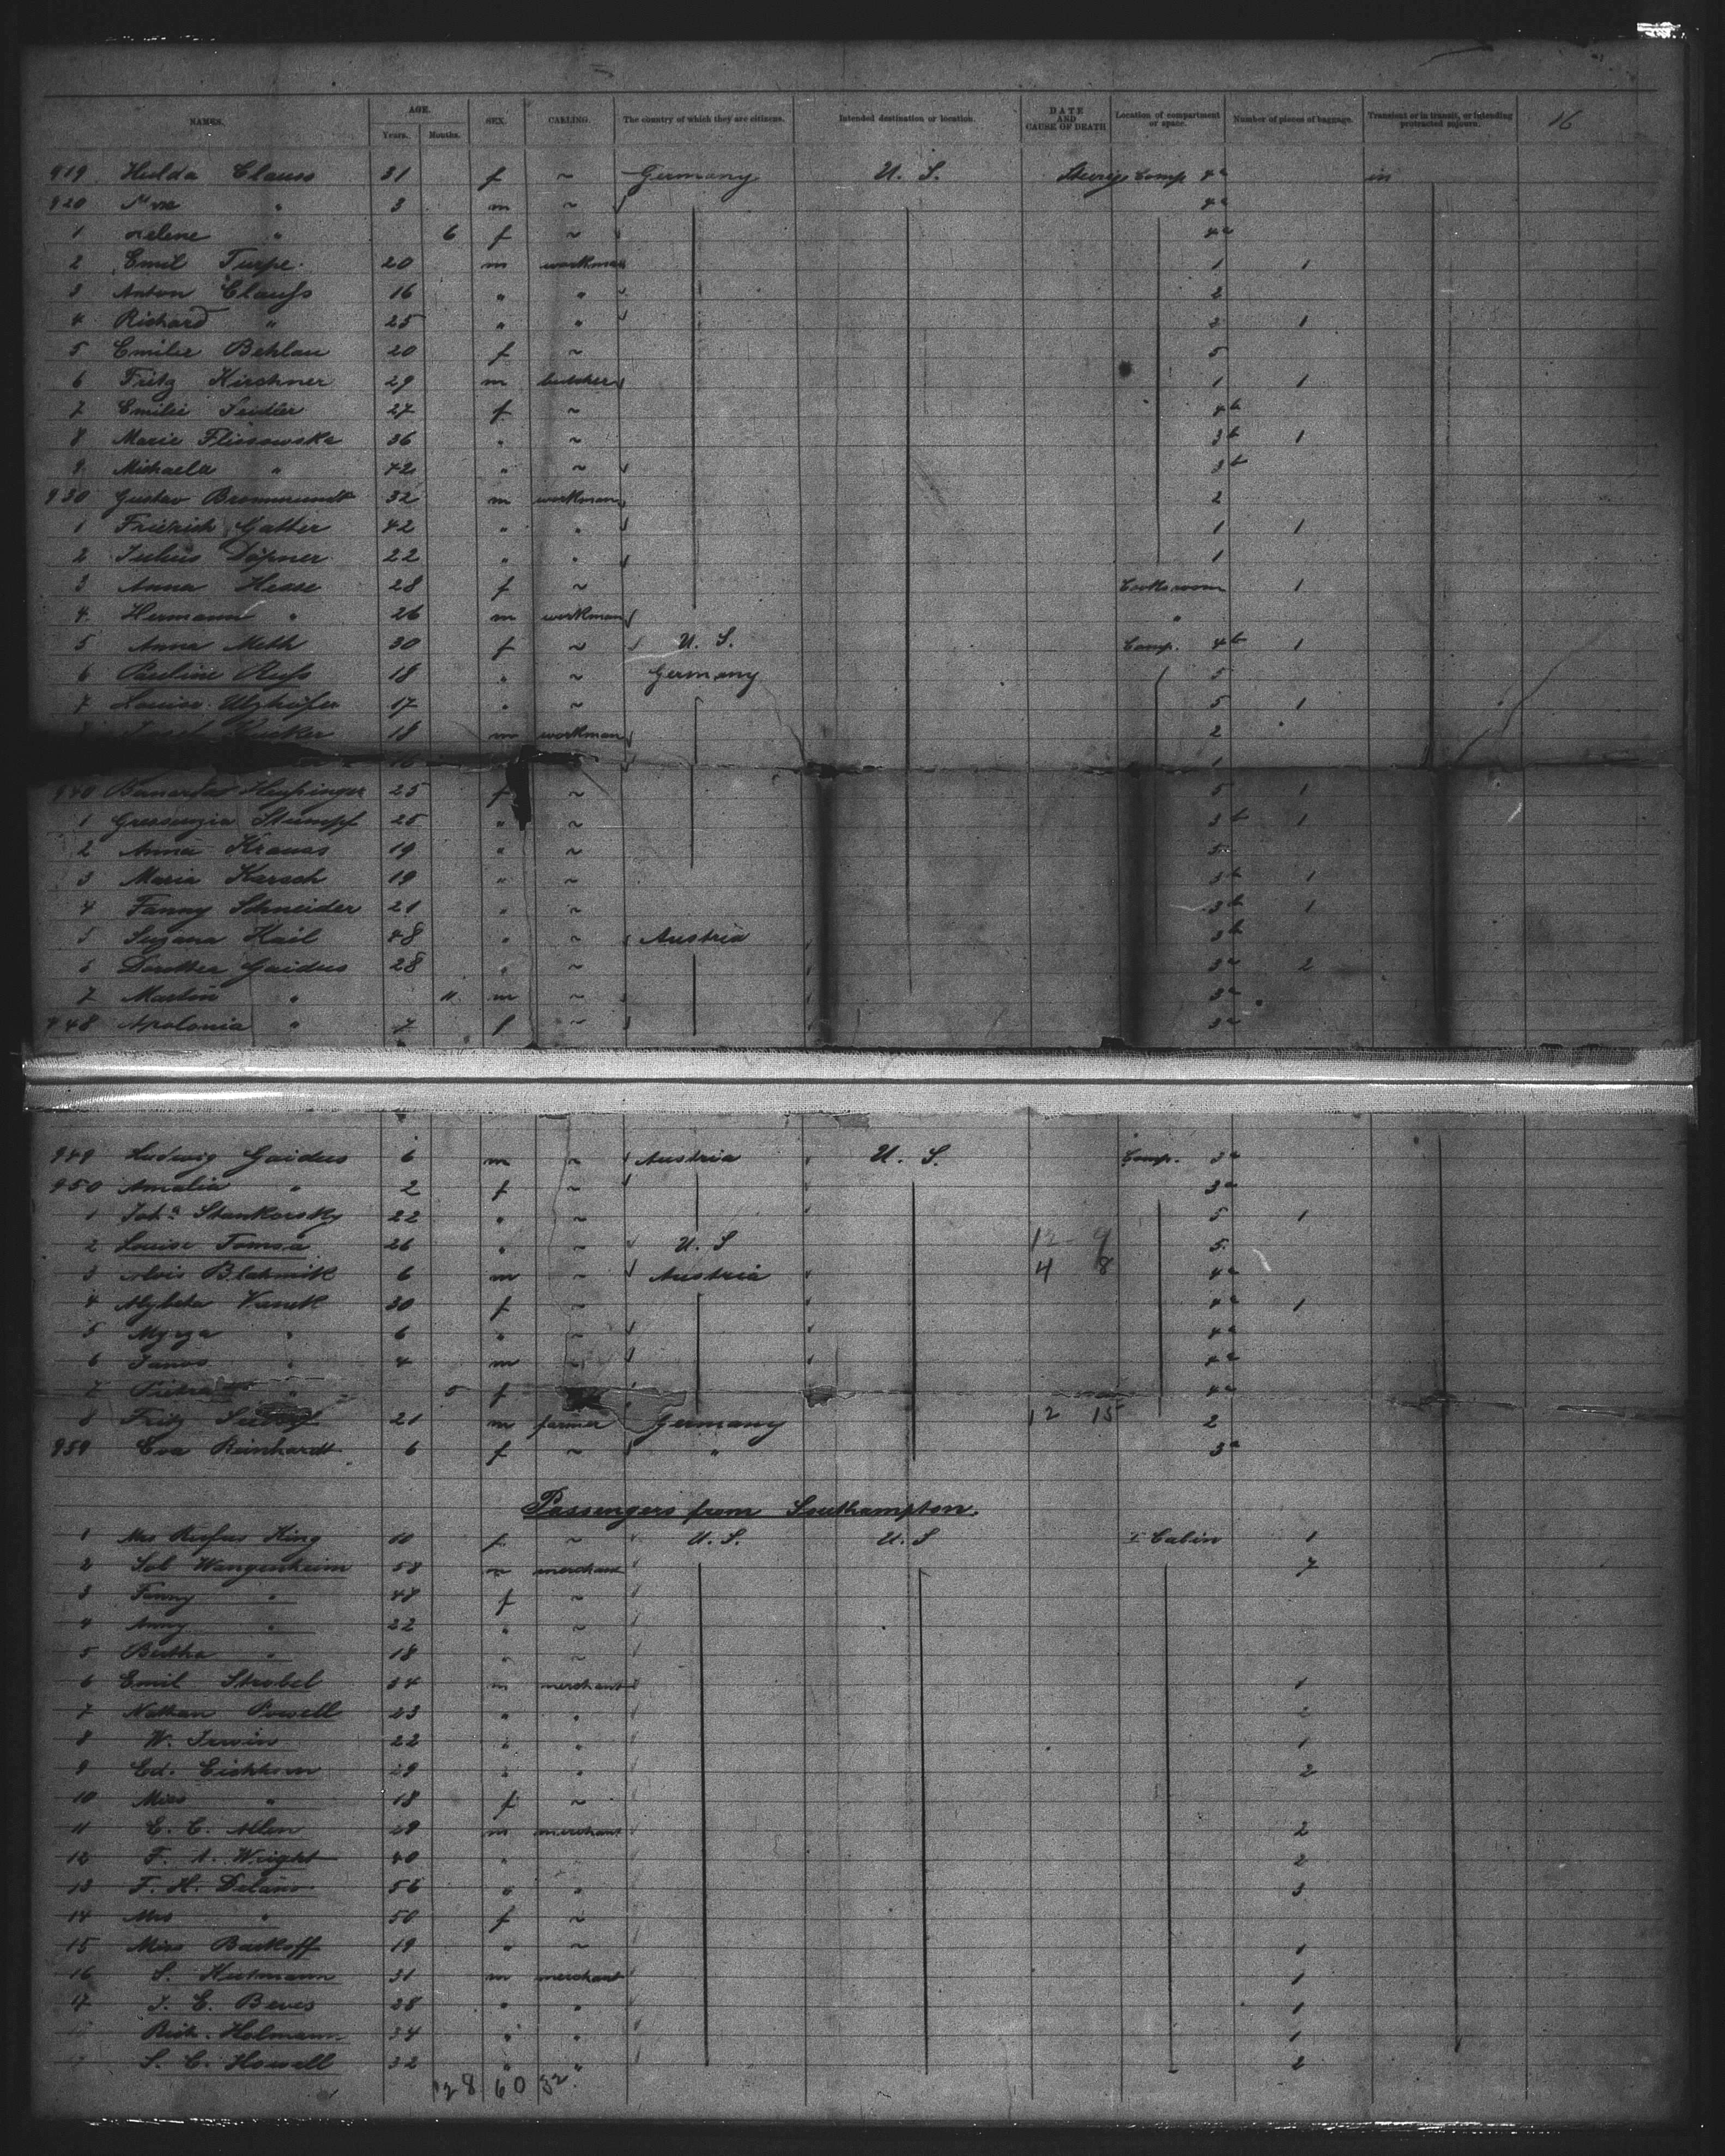 16
NAMES. AGE. Years. Months. SEX. CALLING. The country of which they are citizens. Intended destination or location. DATE AND CAUSE OF DEATH Location of compartment or space. Number of pieces of baggage. Transient or in transit, or intending protracted sojourn.
919 Hulda Clauss 31 f ~ Germany U. S. Comp 4a in
920 " 3 m ~ 4a
1 Helene " 6 f ~ 4a
2 Emil Turpe 20 m workman 1 1
3 Anton Clauss 16 " " 2
4 Richard " 25 " " 2 1
5 Emilie Behlau 20 f ~ 5
6 Fritz Kirchner 29 m butcher 1 1
7 Emilie Seidler 27 f ~ 4b
8 Marie Flissowska 36 " ~ 3b 1
9 Michaela " 42 " ~ 3b
930 Gustav Brommundt 32 m workman 2
1 Friedrich Gatter 42 " " 1 1
2 Julius Döpner 22 " " 1
3 Anna Hesse 28 f ~ Cooks room 1
4 Hermann " 26 m workman "
5 Anna Meth 30 f ~ U. S. Comp. 4b 1
6 Pauline Russ 18 " ~ Germany 5
7 Louise Ulzhöfer 17 " ~ 5 1
18 m workman 2
1
940 Heussinger 25 f ~ 5 1
1 Stumpf 25 " ~ 3b 1
2 Anna Kraus 19 " ~ 5
3 Maria Karsch 19 " ~ 3b 1
4 Fanny Schneider 21 " ~ 3b 1
5 Suzana Hail 48 " ~ Austria 3b
6 Gaidus 28 " ~ 3a 2
7 Martin " 11 m ~ 3a
948 Apolonia " 7 f ~ 3a
949 Ludwig Gaidus 6 m ~ Austria U. S. Comp. 3a
950 Amalia " 2 f ~ 3a
1 Joha Stankorsky 22 " ~ 5 1
2 Louise Tomsa 26 " ~ U. S 12 9 5
3 Alois Blahnik 6 m ~ Austria 4 8 4a
4 Alzbeta Vanek 30 f ~ 4a 1
5 " 6 " ~ 4a
6 Janos " 4 m ~ 4a
7 " 5 f 4a
8 Fritz 21 m farmer Germany 12 15 2
959 Eva Reinhardt 6 f ~ " 3a
Passengers from Southampton.
1 Mrs Rufus King f ~ U. S. U. S I Cabin 1
2 Sol Wangenheim 58 m merchant 7
3 Fanny " 48 f ~
4 Anny " 22 " ~
5 Bertha " 18 " ~
6 Emil Strobel 34 m merchant 1
7 Nathan Powell 23 " " 2
8 W. Irwin 22 " " 1
9 Ed. Eichhorn 29 " " 2
10 Miss " 18 f ~
11 E. C. Allen 29 m merchant 2
12 F. A. Wright 40 " " 2
13 F. H. Delano 56 " " 3
14 Mrs " 50 f ~
15 Miss Barkoff 19 " ~ 1
16 S. Hutmann 31 m merchant 1
17 J. E. Beves 28 " " 1
Rich. Holmann 34 " " 1
S. C. Howell 32 " " 2
128 60 32